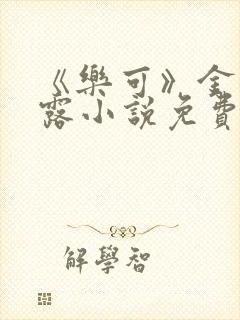 《樂可》金
露小說免費
解學智